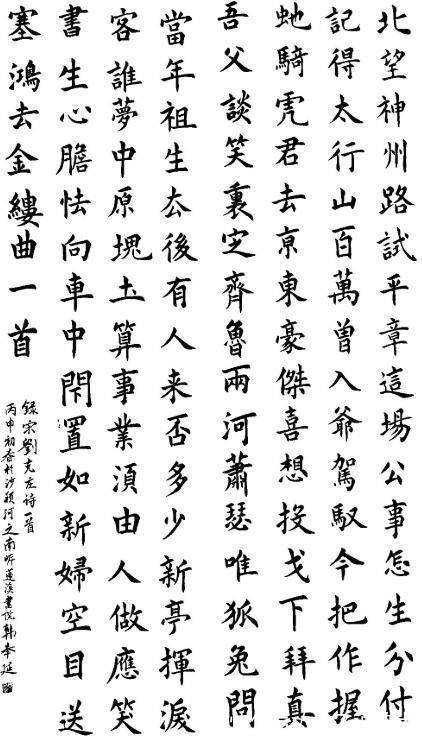 北望神州路試平章這場公事怎生分付
記得太行山百萬曾入爺駕馭今把作握
虵騎虎君去京東豪傑喜想投戈下拜真
吾父談笑裏定齊魯兩河蕭瑟唯狐兔問
當年祖生去後有人来否多少新亭揮淚
客誰夢中原塊土算事業須由人做應笑
書生心膽怯向車中閉置如新婦空目送
塞鴻去金縷曲一首
錄宋劉克庄诗一首
丙申初春於沙颍河之南莲溪書院韩奉延